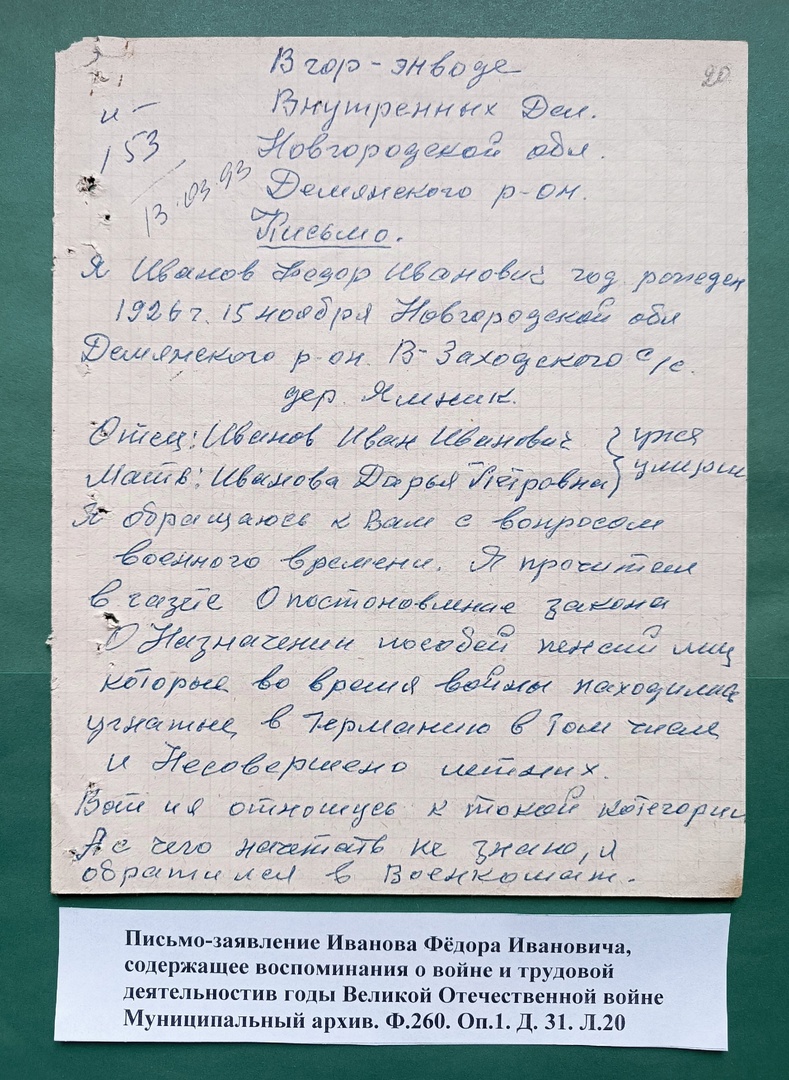 20
В гор-энводе
Внутренных Дел.
и-
153
13.03.93
Новгородской обл.
Демянского р-он.
Письмо.
Я Иванов Федор Иванович год рожеден
1926 г. 15 ноября Новгородской обл
Демянского р-он. В-Заходского с/с.
дер. Ямник.
Отец: Иванов Иван Иванович } уже
Мать: Иванова Дарья Пётровна } умерли
Я обращаюсь к Вам с вопросом
военного времени. Я прочитал
в газте О постоновление закона
О Назначении пособей пенсий лиц
которые во время войны находились
угнатые в Германию в Том числе
и Несовершено летних.
Вот и я отношусь к токой котегории
А с чего начетать не знаю, я
обратился в Военкомат.
Письмо-заявление Иванова Фёдора Ивановича,
содержащее воспоминания о войне и трудовой
деятельностив годы Великой Отечественной войне
Муниципальный архив. Ф.260. Оп.1. Д. 31. Л.20